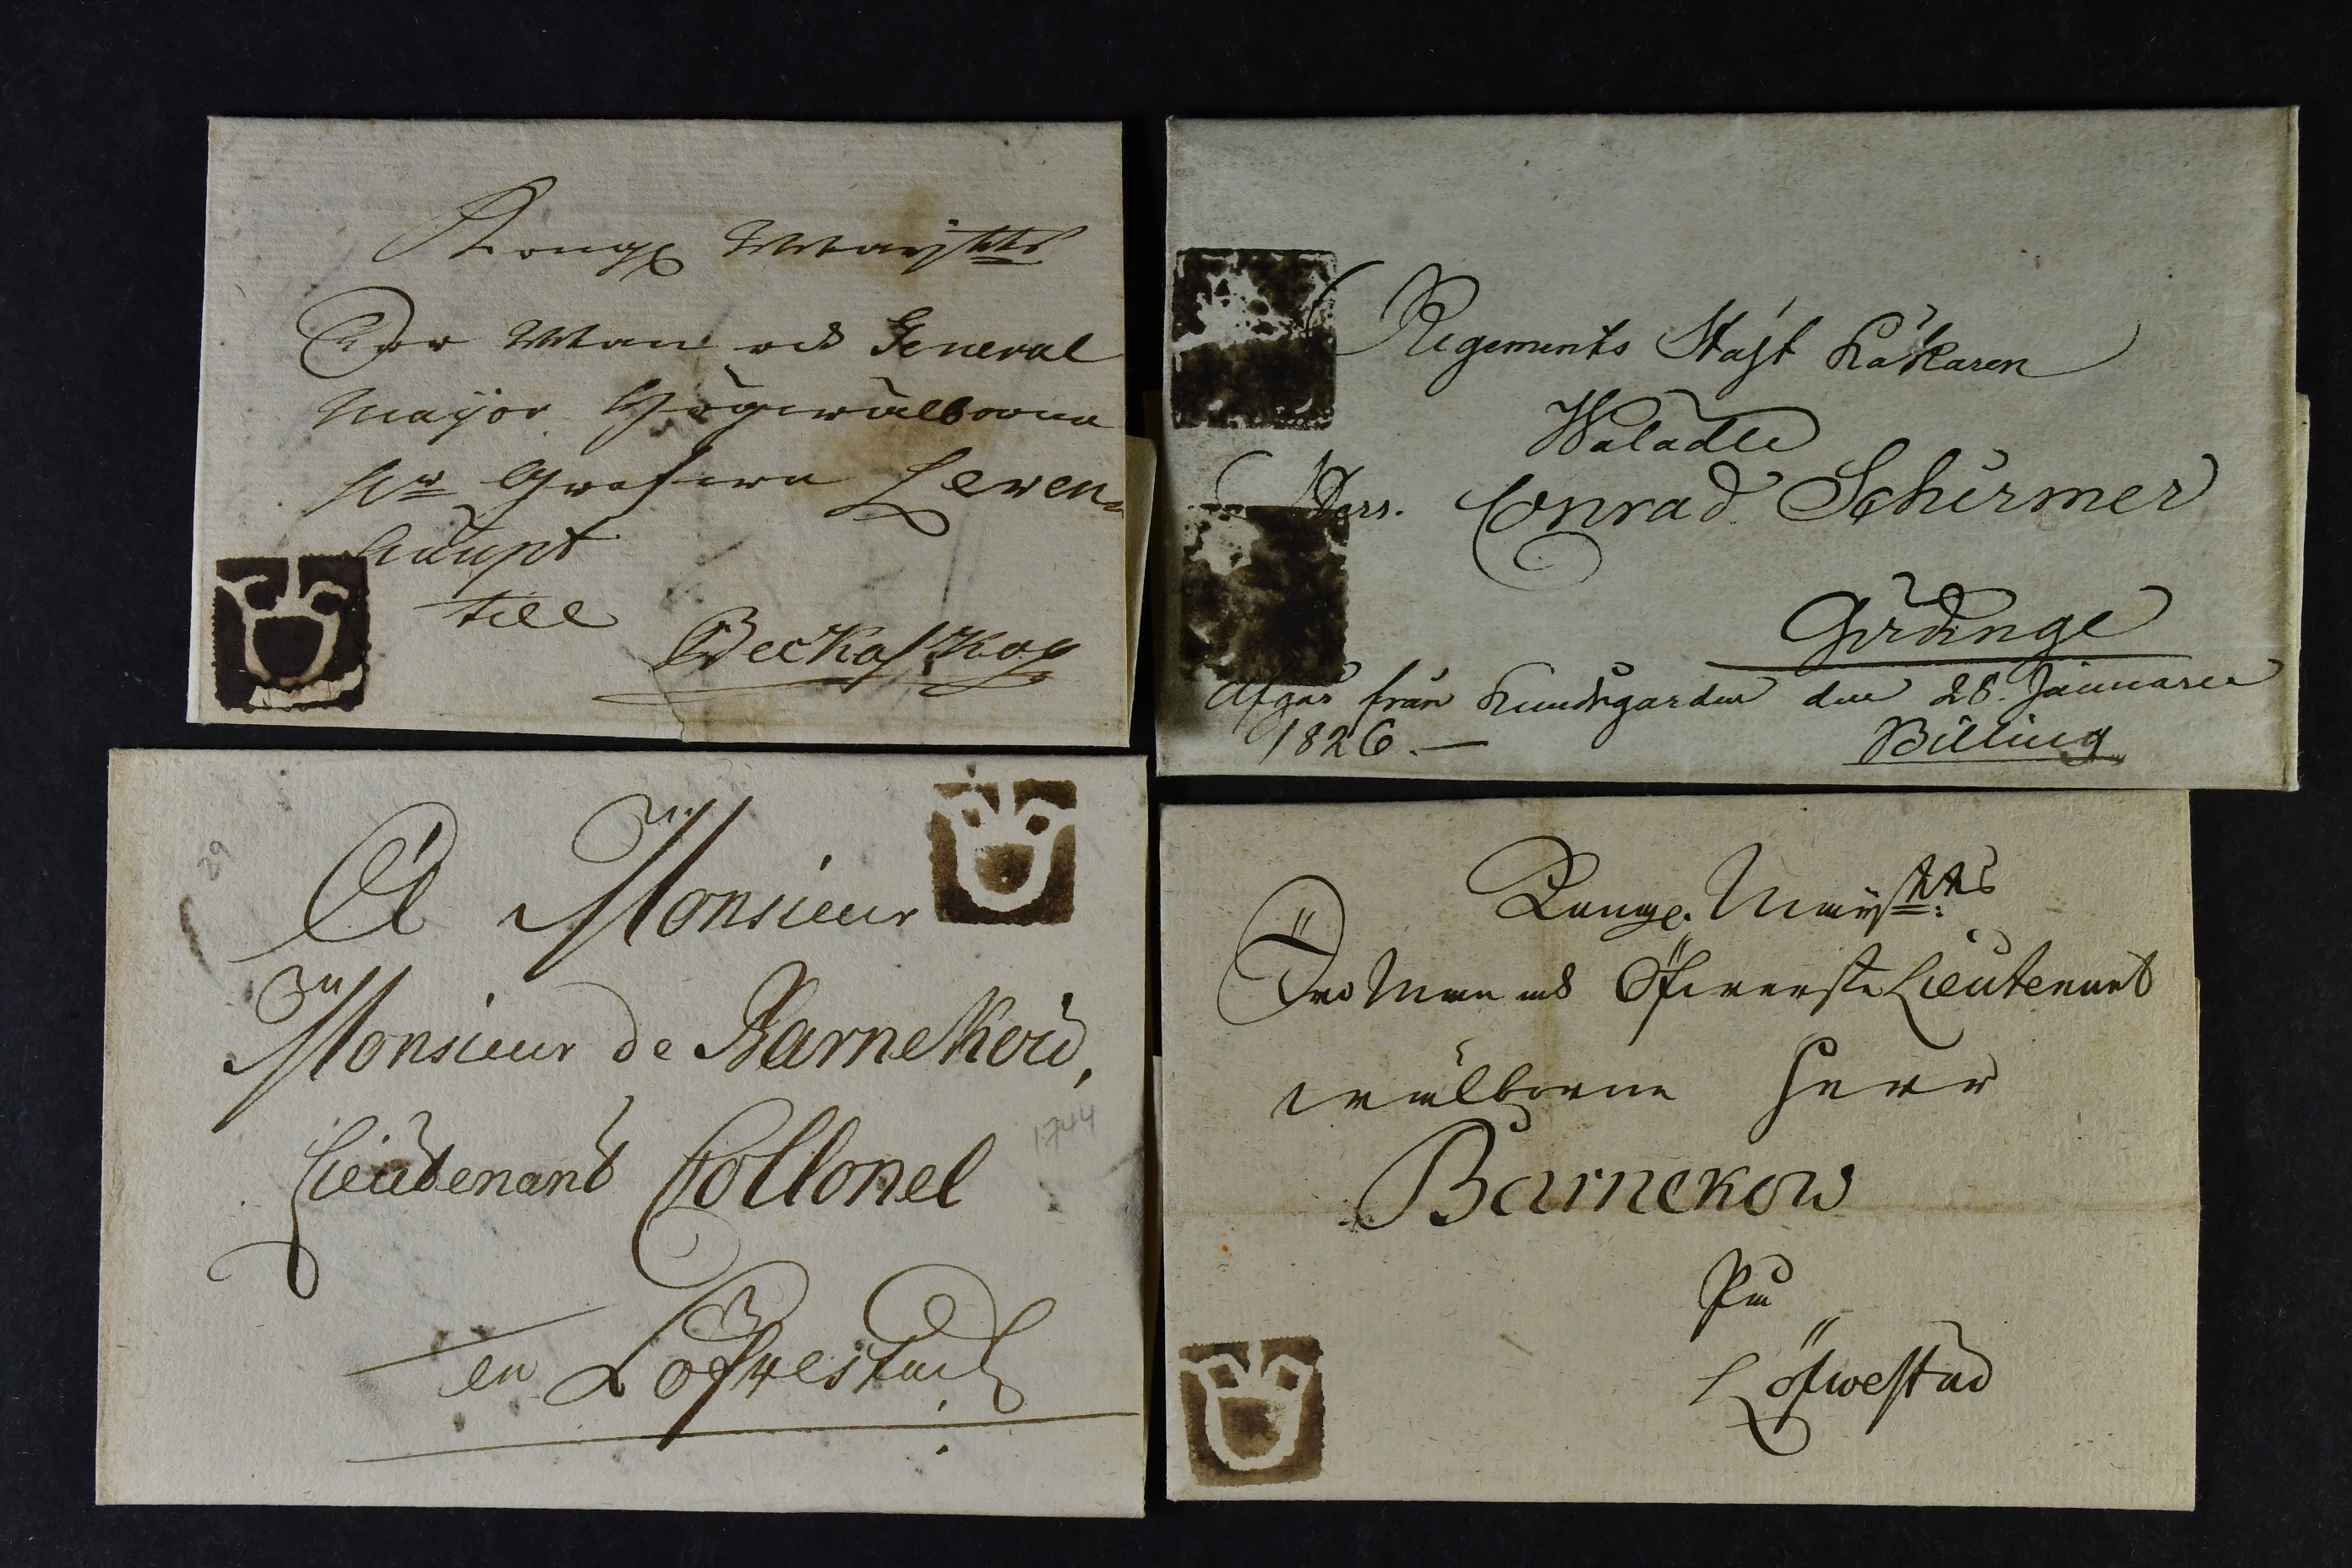 Kongl Mayttz
Tro Man och General
Mayor Högwälborne
Hr Grefwe Lewen=
haupt
till
Beckaskog
Regements Häst Läkaren
Wäladle
Herr. Conrad Schirmer
Gärdinge
Afgår från den 28. Januarii
1826.—
Billing
A Monsieur
Monsieur de Barnekow,
Lieutenant Collonel
en Löfwestad
29
1744
Kongl. Mayttz
Tro Man och Öfwerste Lieutenant
wälborne Herr
Barnekow
På
Löfwestad